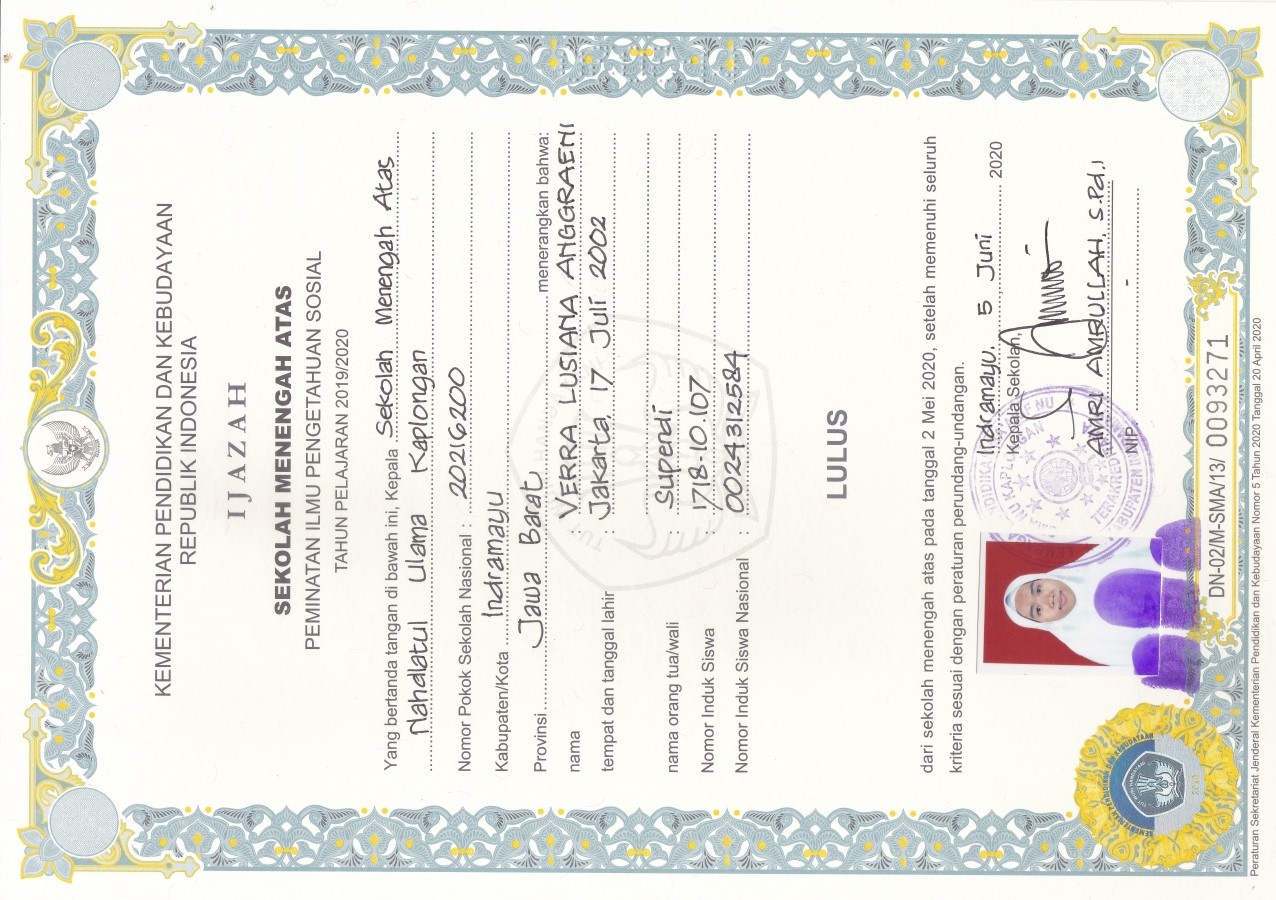 KEMENTERIAN PENDIDIKAN DAN KEBUDAYAAN
REPUBLIK INDONESIA
IJAZAH
SEKOLAH MENENGAH ATAS
PEMINATAN ILMU PENGETAHUAN SOSIAL
TAHUN PELAJARAN 2019/2020
Yang bertanda tangan di bawah ini, Kepala Sekolah Menengah Atas
Nahdlatul Ulama Kaplongan
Nomor Pokok Sekolah Nasional : 20216200
Kabupaten/Kota Indramayu
Provinsi Jawa Barat menerangkan bahwa:
nama : VERRA LUSIANA ANGGRAENI
tempat dan tanggal lahir : Jakarta, 17 Juli 2002
nama orang tua/wali : Supendi
Nomor Induk Siswa : 1718-10.107
Nomor Induk Siswa Nasional : 0024312584
LULUS
dari sekolah menengah atas pada tanggal 2 Mei 2020, setelah memenuhi seluruh
kriteria sesuai dengan peraturan perundang-undangan.
Indramayu, 5 Juni 2020
Kepala Sekolah,
AMRI AMRULLAH, S.Pd.I
NIP. -
NU KAPLONGAN
TERAKREDITASI
KABUPATEN
TUT WURI HANDAYANI
DN-02/M-SMA/13/ 0093271
Peraturan Sekretariat Jenderal Kementerian Pendidikan dan Kebudayaan Nomor 5 Tahun 2020 Tanggal 20 April 2020